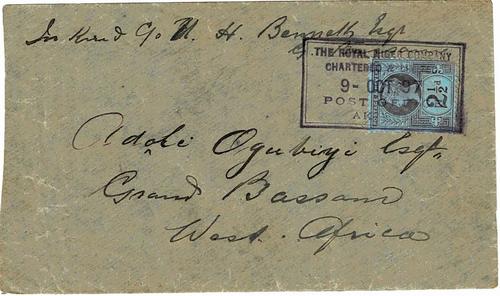 In kind c/o H. Bennett Esqr
THE ROYAL NIGER COMPANY
CHARTERED &
9 - OCT. 97
POST
AK
2½d
Adolé Ogubiyi Esqr.
Grand Bassam
West. Africa